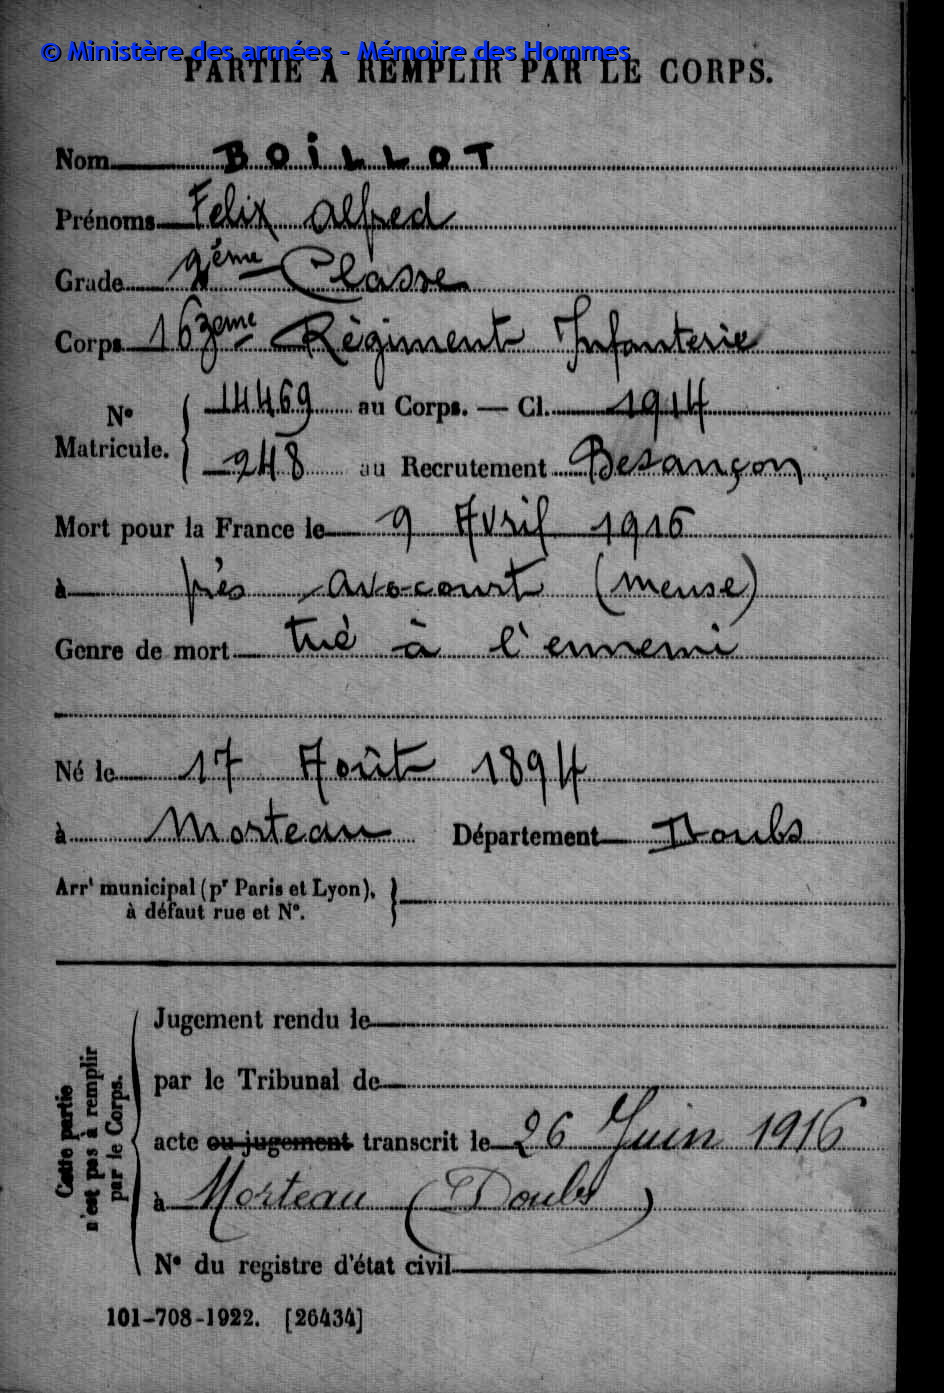 © Ministère des armées - Mémoire des Hommes
PARTIE A REMPLIR PAR LE CORPS.
Nom BOiLLOT
Prénoms Felix Alfred
Grade 2ème Classe
Corps 163eme Règiment Infanterie
N° Matricule. { 14469 au Corps. — Cl. 1914
248 au Recrutement Besançon
Mort pour la France le 9 Avril 1916
à près Avocourt (Meuse)
Genre de mort tué à l'ennemi
Né le 17 Août 1894
à Morteau Département Doubs
Arrt municipal (pr Paris et Lyon), }
à défaut rue et N°.
Cette partie n'est pas à remplir par le Corps.
Jugement rendu le
par le Tribunal de
acte ou jugement transcrit le 26 Juin 1916
à Morteau (Doubs)
N° du registre d'état civil
101-708-1922. [26434]